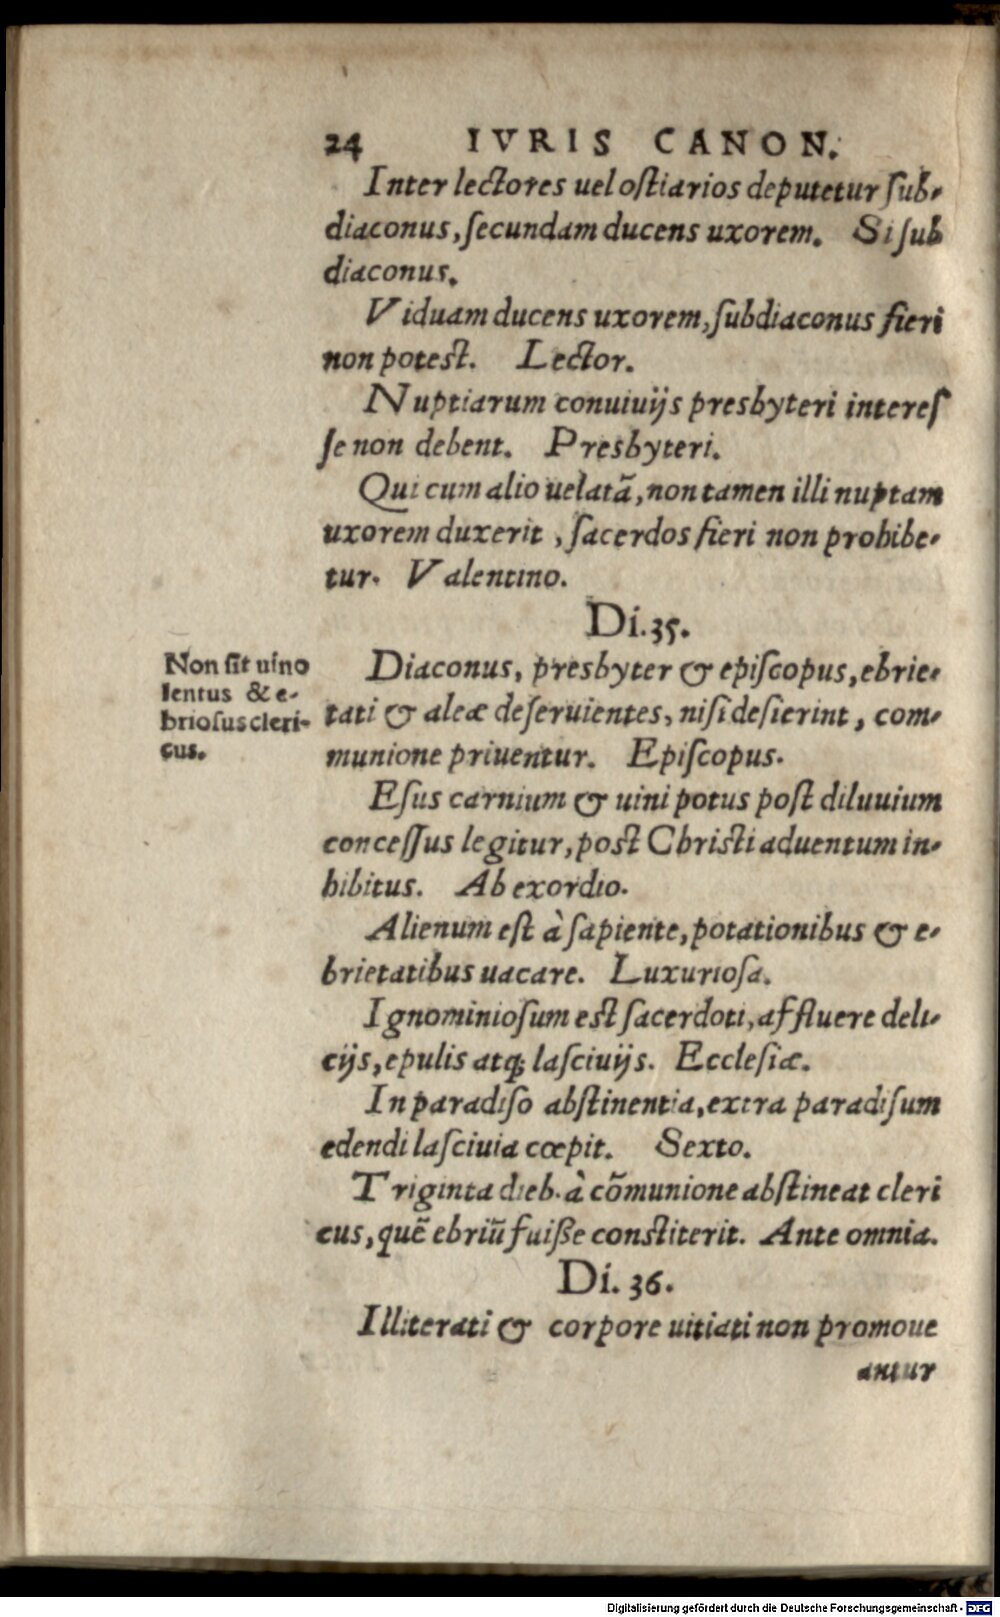 24 IVRIS CANON.
Inter lectores uel ostiarios deputetur sub-
diaconus, secundam ducens uxorem. Si sub
diaconus.
Viduam ducens uxorem, subdiaconus fieri
non potest. Lector.
Nuptiarum conuiuijs presbyteri interes
se non debent. Presbyteri.
Qui cum alio uelatã, non tamen illi nuptam
uxorem duxerit, sacerdos fieri non prohibe-
tur. Valentino.
Di. 35.
Non sit uino
lentus & e-
briosus cleri-
cus.
Diaconus, presbyter & episcopus, ebrie-
tati & aleæ deseruientes, nisi desierint, com-
munione priuentur. Episcopus.
Esus carnium & uini potus post diluuium
concessus legitur, post Christi aduentum in-
hibitus. Ab exordio.
Alienum est à sapiente, potationibus & e-
brietatibus uacare. Luxuriosa.
Ignominiosum est sacerdoti, affluere deli-
cijs, epulis atq; lasciuijs. Ecclesiæ.
In paradiso abstinentia, extra paradisum
edendi lasciuia cœpit. Sexto.
Triginta dieb. à cõmunione abstineat cleri
cus, quẽ ebriũ fuisse constiterit. Ante omnia.
Di. 36.
Illiterati & corpore uitiati non promoue
antur
Digitalisierung gefördert durch die Deutsche Forschungsgemeinschaft - DFG